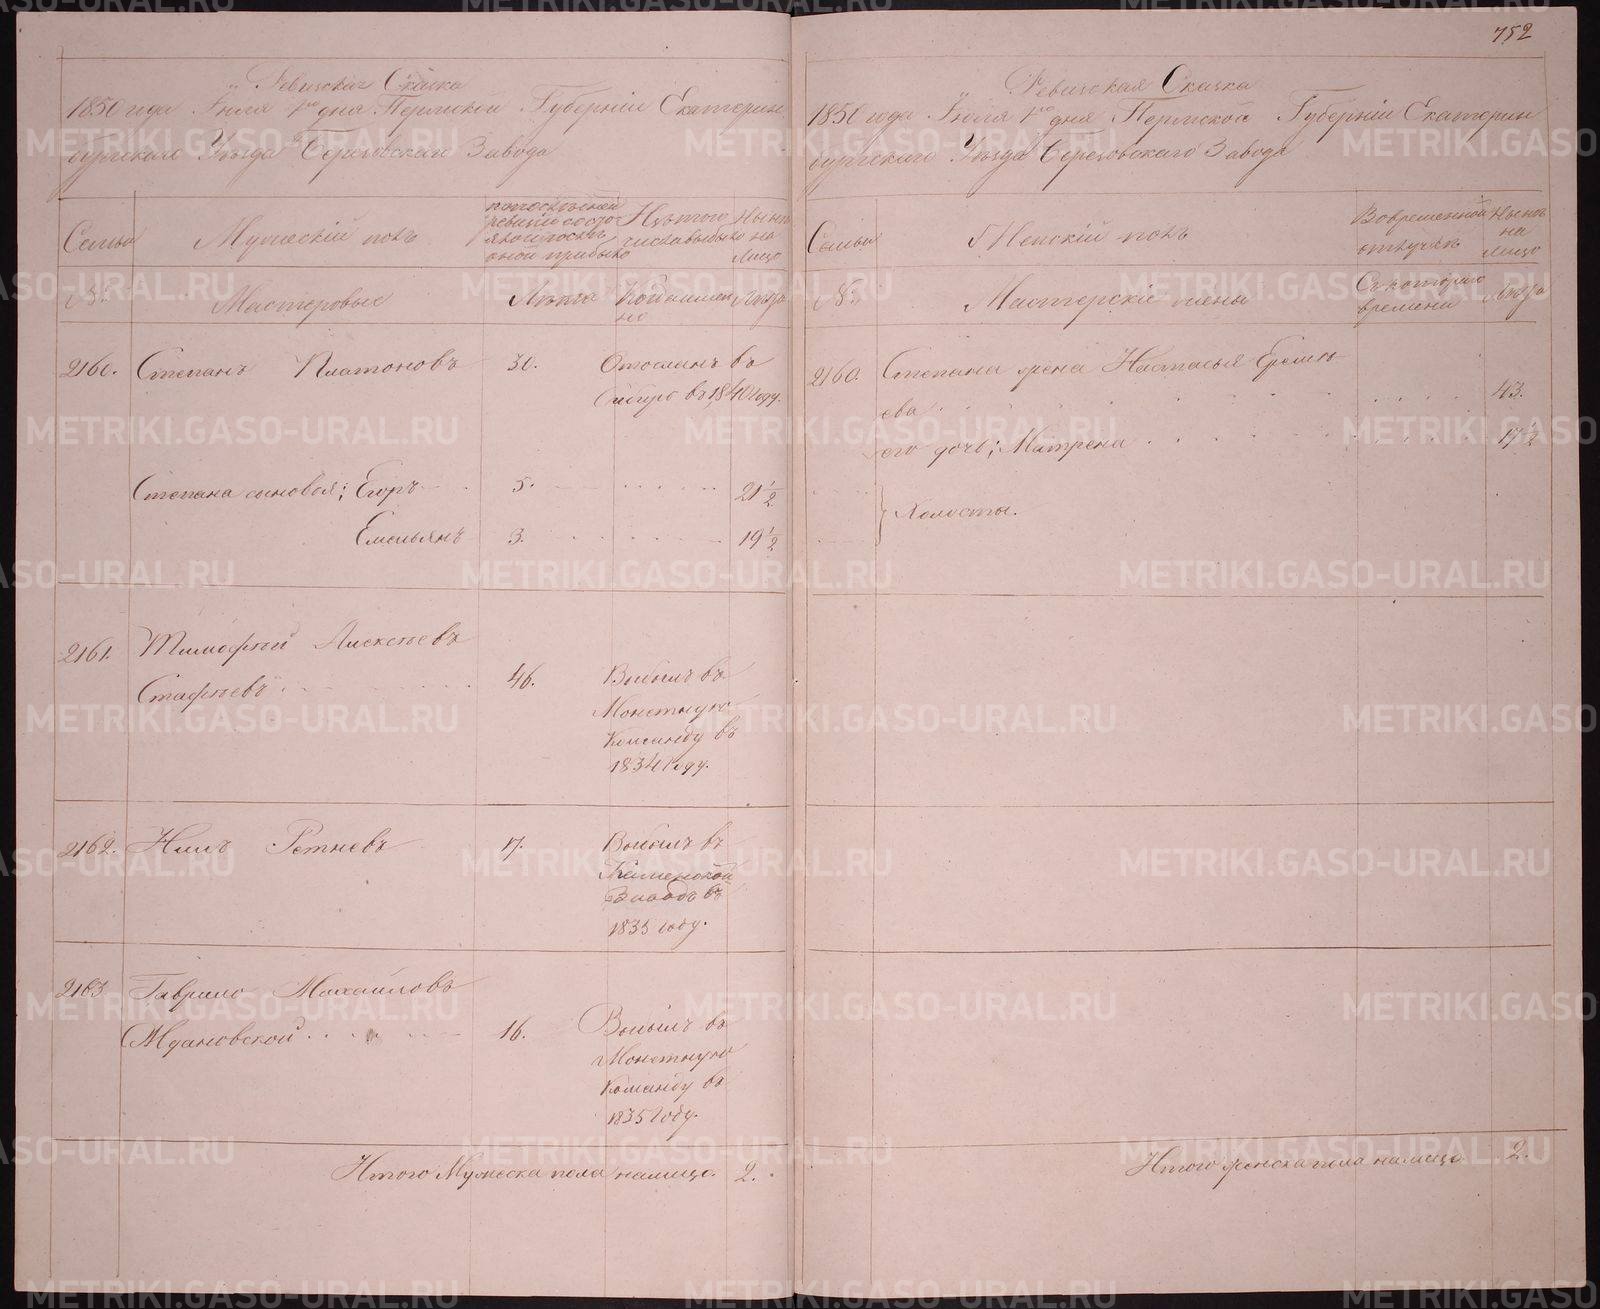 752
Ревизская Сказка
1850 года Июля 1го дня Пермской Губернiи Екатерин
бургскаго Уѣзда Березовскаго Завода
Семьи
Мужескiй полъ
по последней
ревизiи состо
яло и послѣ
оной прибыло
Изъ того
числа выбыло
Нынѣ
на
лицо
№
Мастеровые
Лѣта
Когда имен
но
Лѣта
2160. Степанъ Платоновъ 30. Отосланъ въ
Сибирь въ 1840 году.
Степана сыновья; Егоръ 5. 21 1/2
Емельянъ 3. 19 1/2
2161. Тимофѣй Алексѣевъ
Стафѣевъ 46. Выбылъ въ
Монетную
Команду въ
1834 году.
2162. Нилъ 17. Выбылъ въ
Каменской
Заводъ въ
1835 году.
2163. Гаврило Михайловъ
16. Выбылъ въ
Монетную
Команду въ
1835 году.
Итого Мужеска пола налицо. 2.
Ревизская Сказка
1850 года Июля 1го дня Пермской Губернiи Екатерин
бургскаго Уѣзда Березовскаго Завода
Семьи
Женскiй полъ
Во временной
отлучкѣ
Нынѣ
на
лицо
№
Мастерскiе жены
Съ котораго
времени
Лѣта
2160. Степана жена Настасья Еремѣ
ева 43.
его дочь; Матрена 17 1/2
Холосты.
Итого женска пола налицо 2.
METRIKI.GASO-URAL.RU